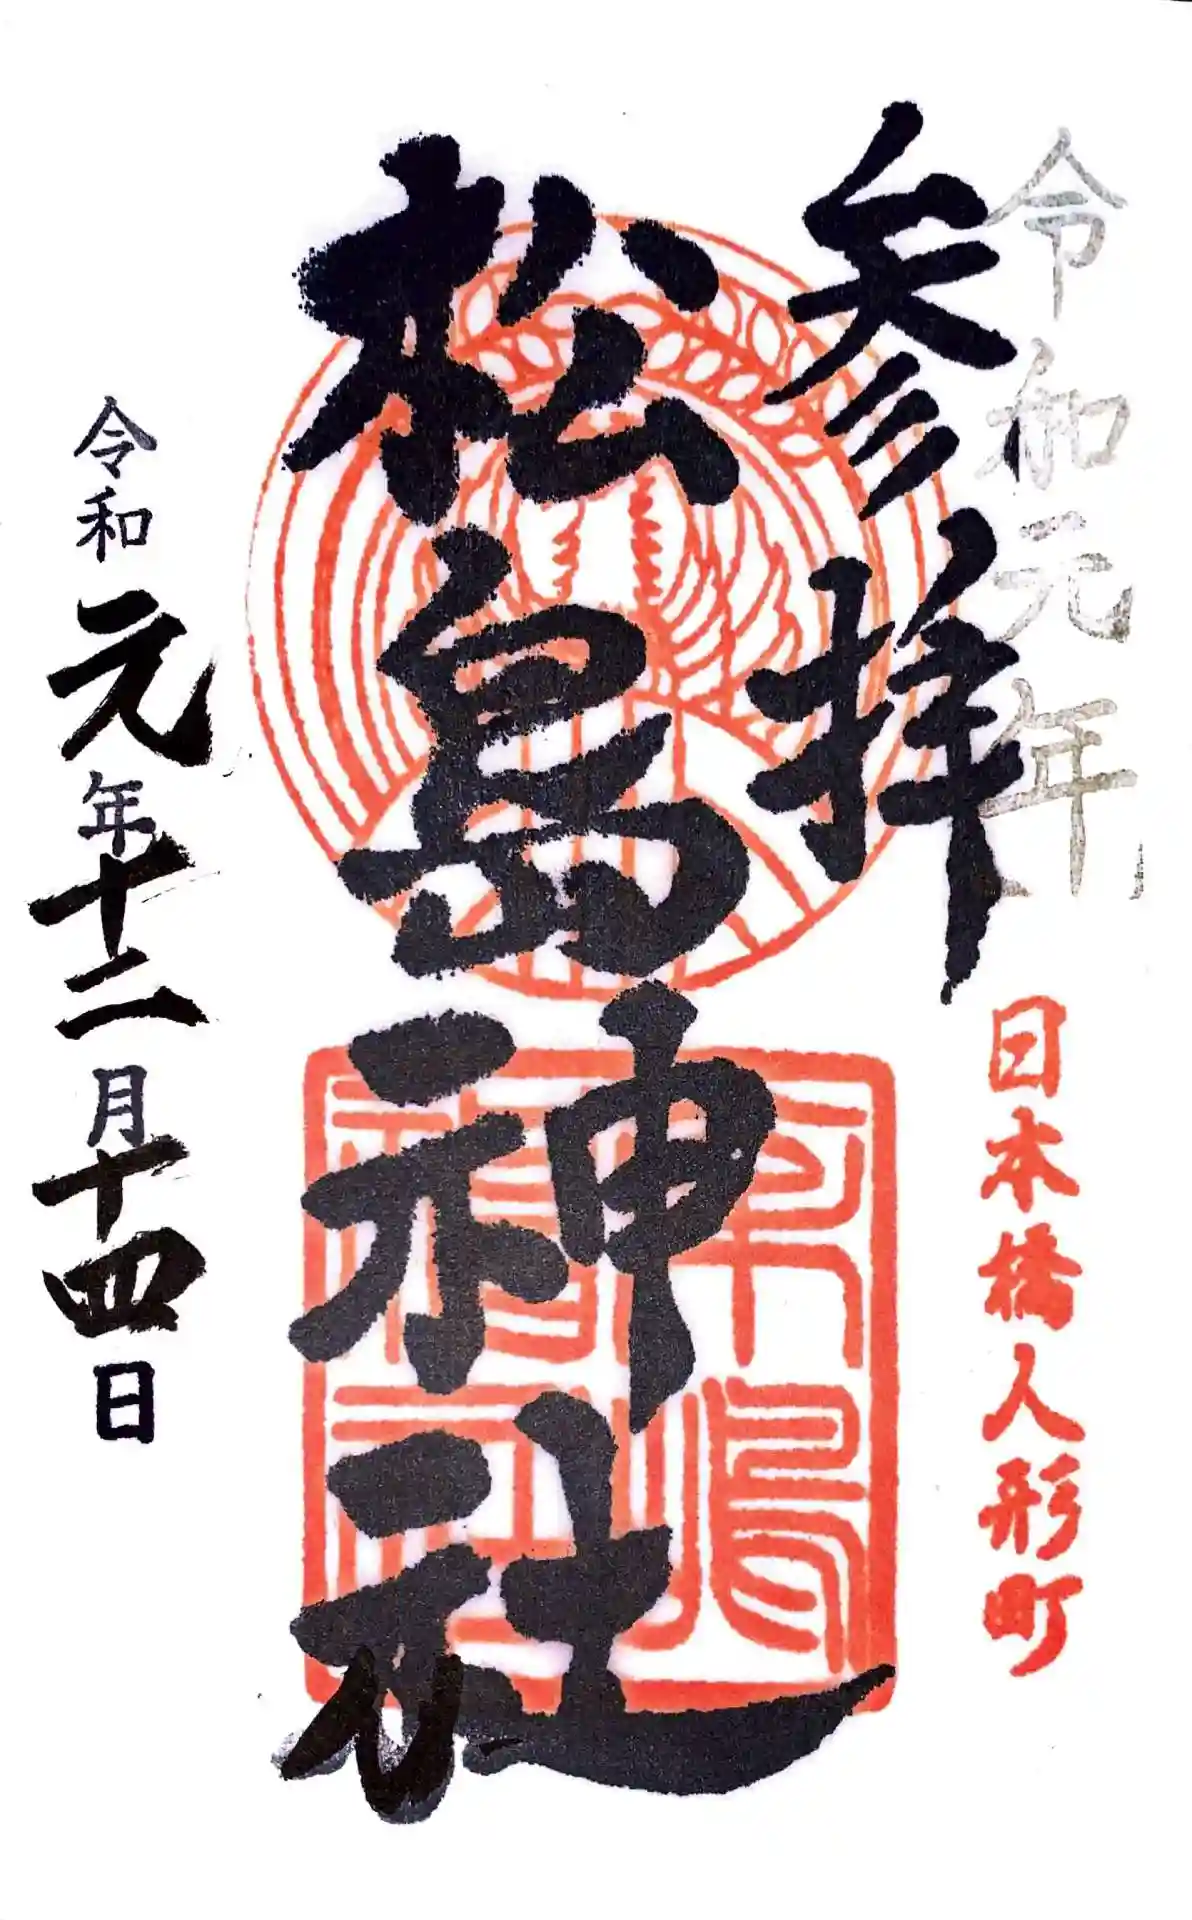 令和元年
参拝
日本橋人形町
松島神社
令和元年十二月十四日